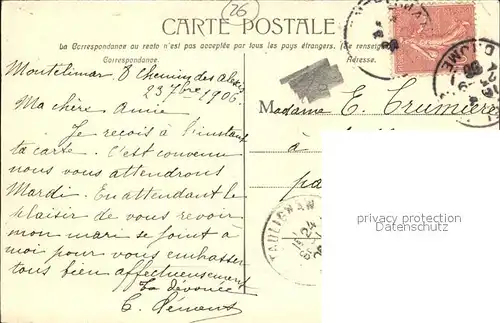 26
CARTE POSTALE
La Correspondance au recto n'est pas acceptée par tous les pays étrangers. (Se renseigner
Correspondance
Adresse.
Montelimar 8 Chemin des
23 7bre 1906.
Ma chère Amie
Je reçois à l'instant
ta carte. C'est convenu
nous vous attendrons
Mardi. En attendant le
plaisir de vous revoir
mon mari se joint à
moi pour vous embrasser
tous bien affectueusement
Ta dévouée
C. Clément
Madame E. Crumière
à
pa
privacy protection
Privatsphärenschutz
TAULIGNAN
24
DROME